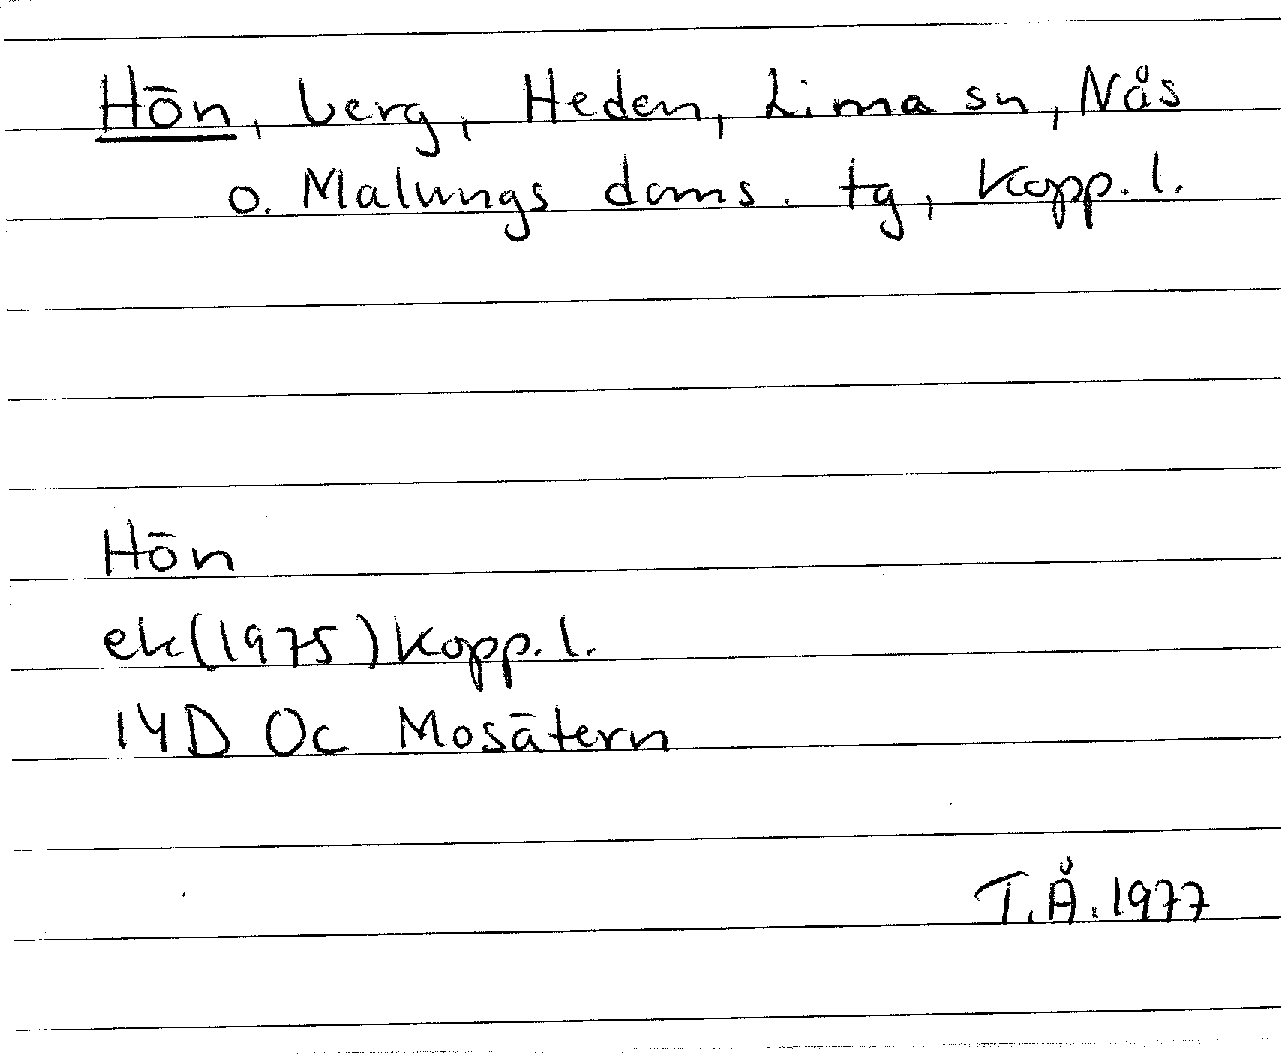 Hön, berg, Heden, Lima sn, Nås
o. Malungs doms. tg, Kopp. l.
Hön
ek(1975) Kopp. l.
14D Oc Mosätern
T.Å. 1977